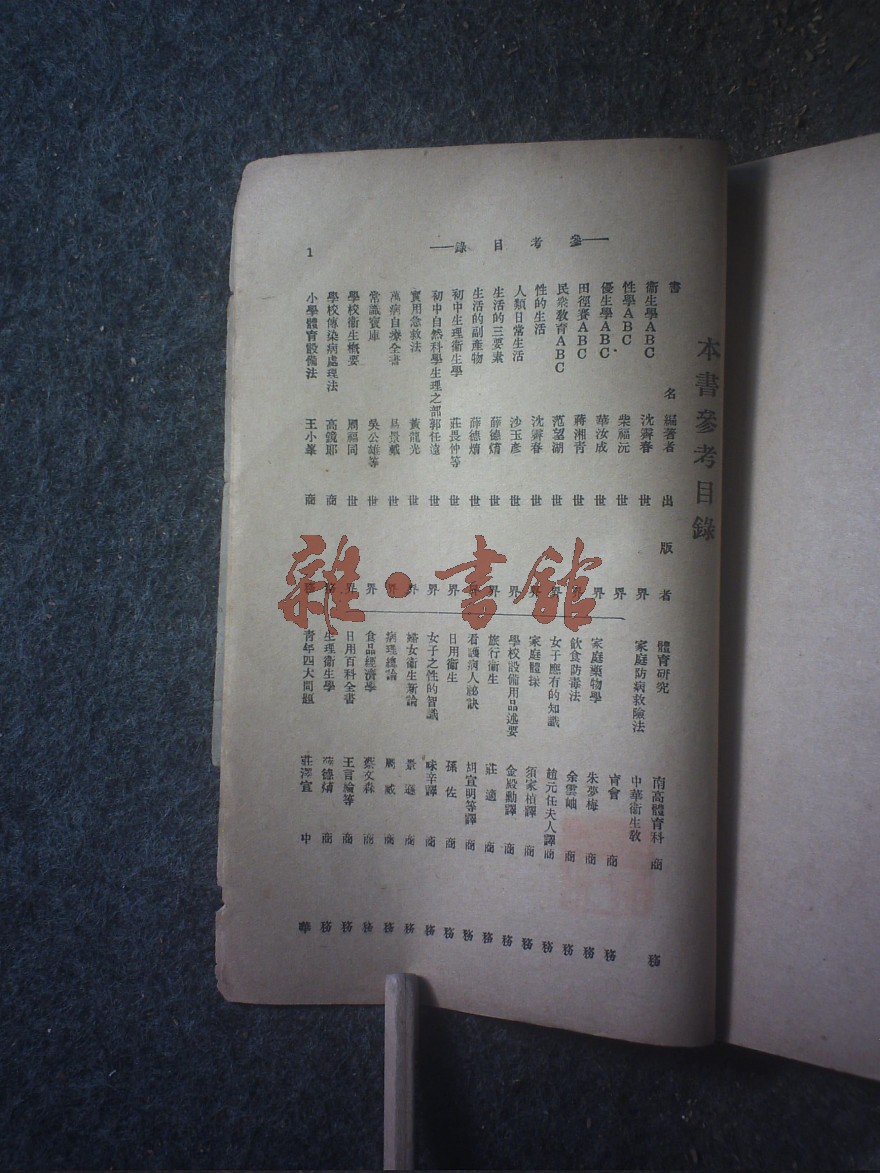 參考目錄
1
本書參考目錄
書名 編著者 出版者
衞生學ABC 沈霽春 世界
性學ABC 柴福沅 世界
優生學ABC 華汝成 世界
田徑賽ABC 蔣湘青 世界
民衆教育ABC 范望湖 世界
性的生活 沈霽春 世界
人類日常生活 沙玉彥 世界
生活的三要素 薛德焴 世界
生活的副產物 薛德焴 世界
初中生理衞生學 莊畏仲等 世界
初中自然科學生理之部 郭任遠 世界
實用急救法 黃龍光 世界
萬病自療全書 易景戴 世界
常識寶庫 吳公雄等 世界
學校衞生概要 周福同 世界
學校傳染病處理法 高鏡 商務
小學體育設備法 王小峯 商務
體育研究 南高體育科 商務
家庭防病救險法 中華衞生教
育會 商務
家庭藥物學 朱夢梅 商務
飲食防毒法 余雲岫 商務
女子應有的知識 趙元任夫人譯 商務
家庭體操 須家楨譯 商務
學校設備用品述要 金殿勳譯 商務
旅行衞生 莊適 商務
看護病人祕訣 胡宣明等譯 商務
日用衞生 孫佐 商務
女子之性的智識 味辛譯 商務
婦女衞生新論 景遜 商務
病理總論 周威 商務
食品經濟學 蔡文森 商務
日用百科全書 王言綸等 商務
生理衞生學 薛德焴 商務
青年四大問題 莊澤宣 中華
雜·書館